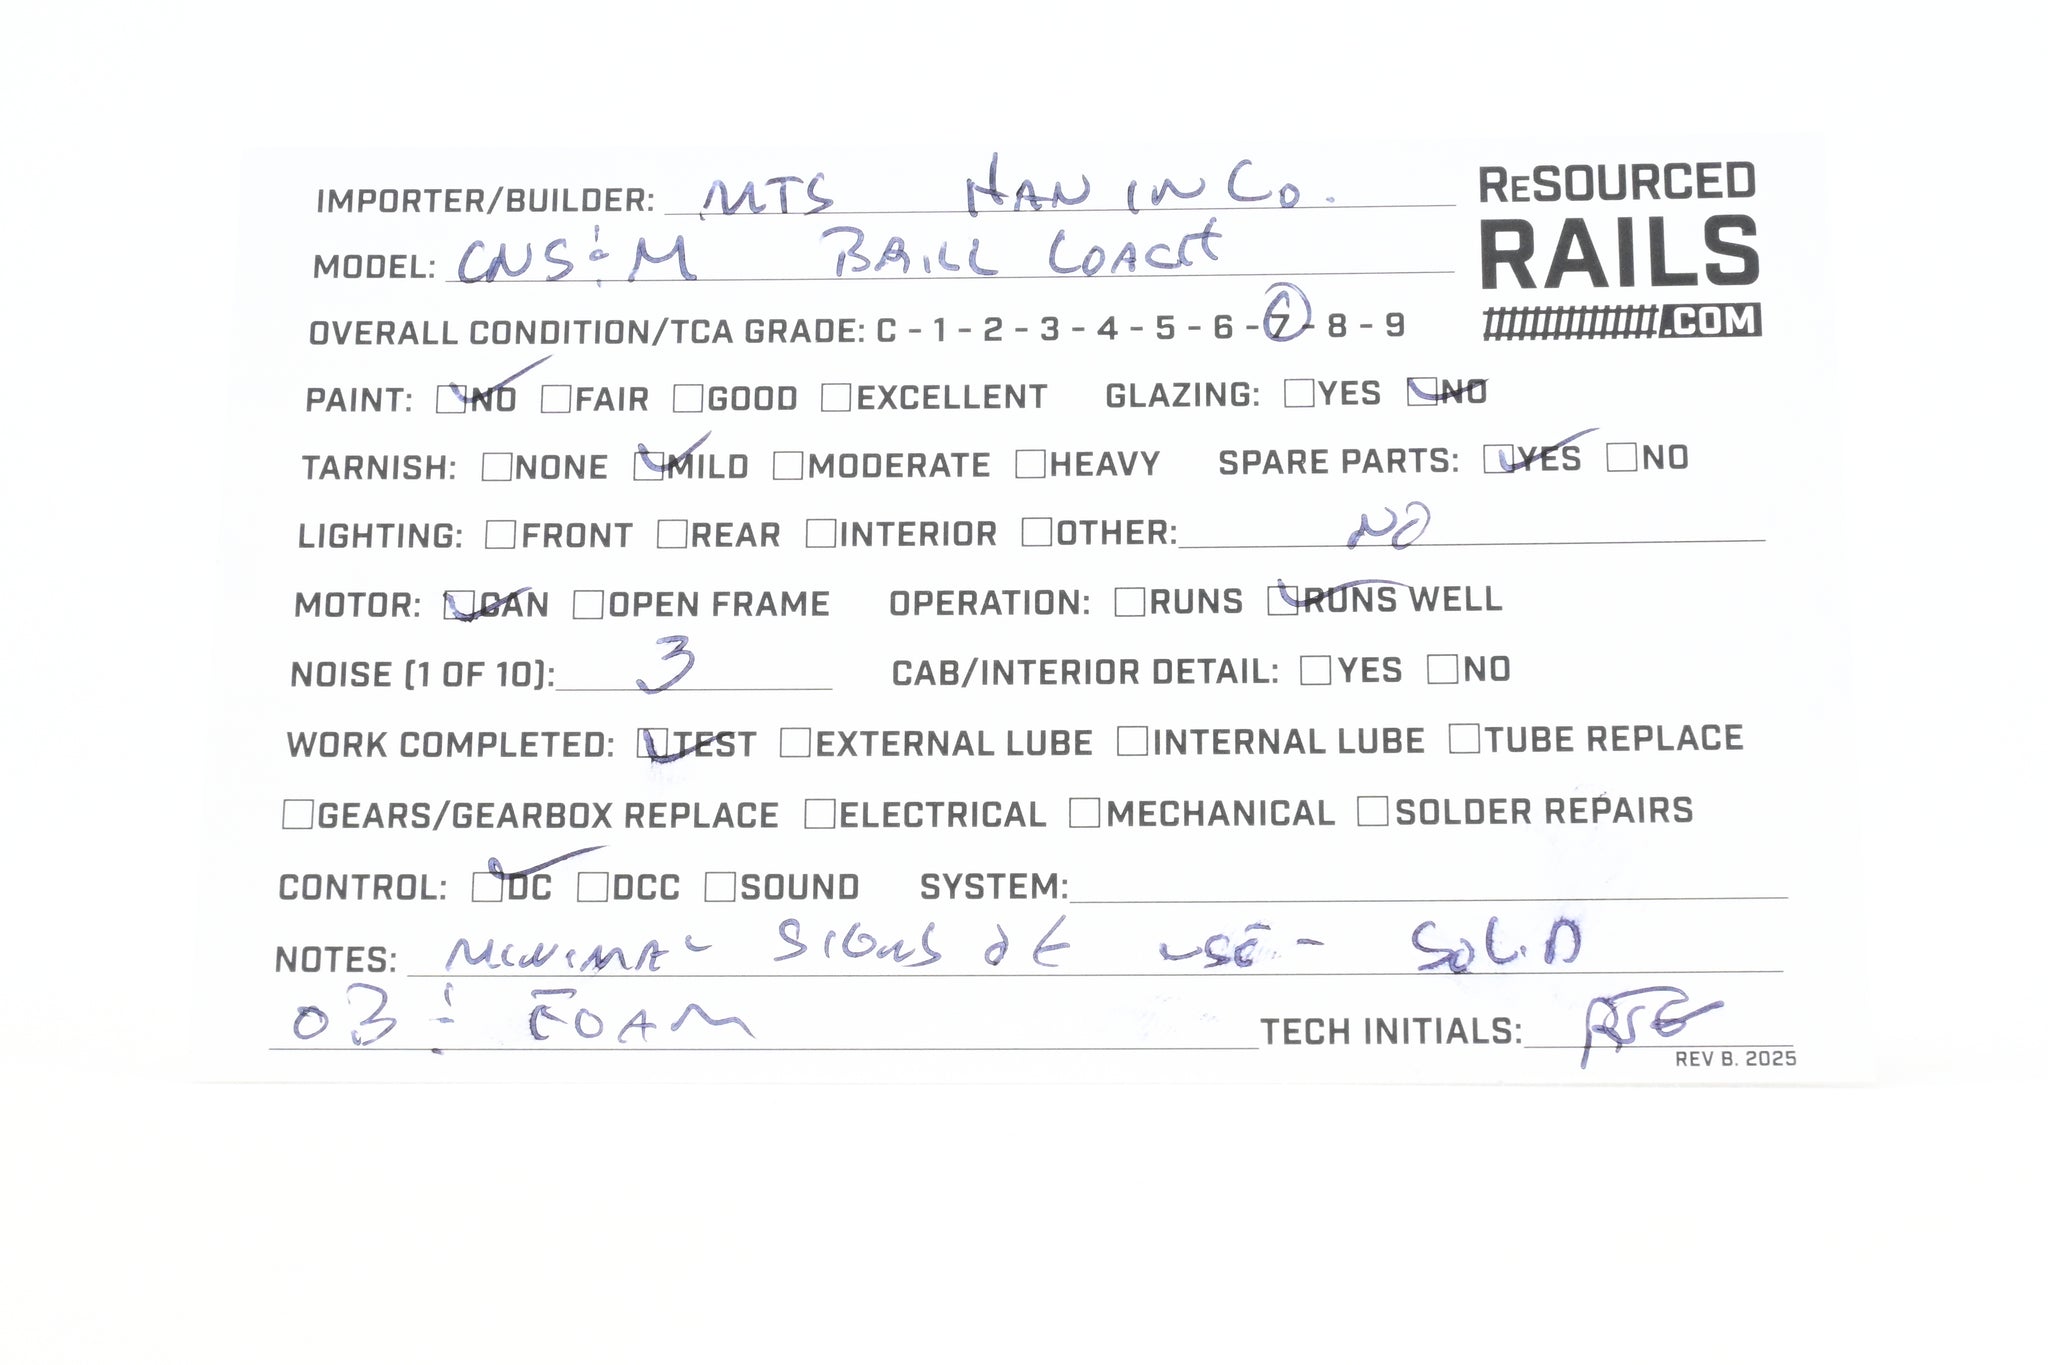 IMPORTER/BUILDER: MTS HAN IN CO.
RESOURCED
RAILS
.COM
MODEL: CNS&M BRILL COACH
OVERALL CONDITION/TCA GRADE: C - 1 - 2 - 3 - 4 - 5 - 6 - 7 - 8 - 9
PAINT: NO FAIR GOOD EXCELLENT GLAZING: YES NO
TARNISH: NONE MILD MODERATE HEAVY SPARE PARTS: YES NO
LIGHTING: FRONT REAR INTERIOR OTHER: NO
MOTOR: CAN OPEN FRAME OPERATION: RUNS RUNS WELL
NOISE (1 OF 10): 3 CAB/INTERIOR DETAIL: YES NO
WORK COMPLETED: TEST EXTERNAL LUBE INTERNAL LUBE TUBE REPLACE
GEARS/GEARBOX REPLACE ELECTRICAL MECHANICAL SOLDER REPAIRS
CONTROL: DC DCC SOUND SYSTEM:
NOTES: MINIMAL SIGNS OF USE - SOLID
OB & FOAM TECH INITIALS:
REV B. 2025